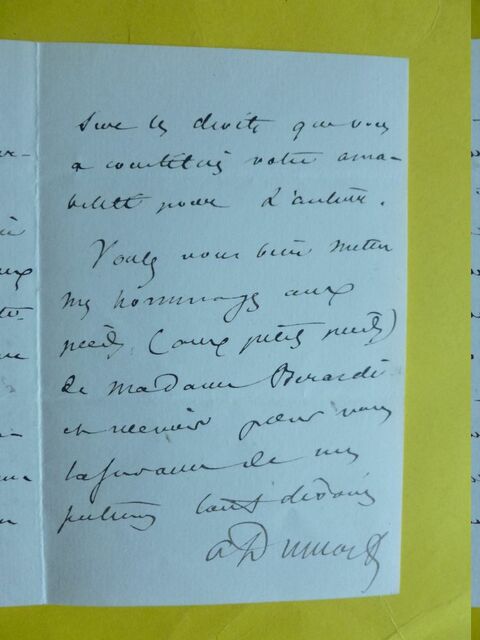 sur les droits que vous
a constitués votre ama-
bilité pour l'auteur.
Voulez vous bien mettre
mes hommages aux
pieds, (aux petits pieds)
de madame Berardi
et recevoir pour vous
l'assurance de mes
sentimens tout dévoués